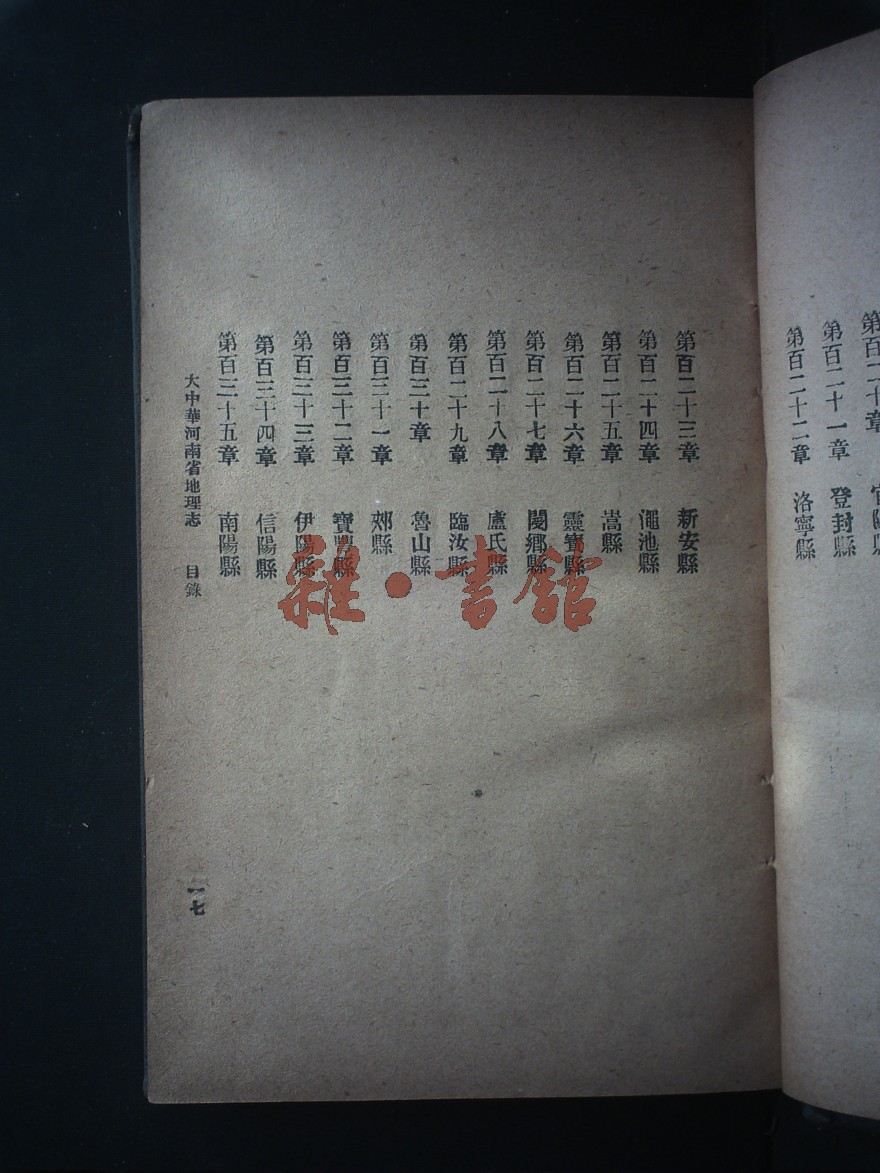 第百二十一章　登封縣
第百二十二章　洛寧縣
第百二十三章　新安縣
第百二十四章　澠池縣
第百二十五章　嵩縣
第百二十六章　靈寶縣
第百二十七章　閿鄉縣
第百二十八章　盧氏縣
第百二十九章　臨汝縣
第百三十章　魯山縣
第百三十一章　郟縣
第百三十二章　寶豐縣
第百三十三章　伊陽縣
第百三十四章　信陽縣
第百三十五章　南陽縣
大中華河南省地理志　目錄
一七
雜·書館